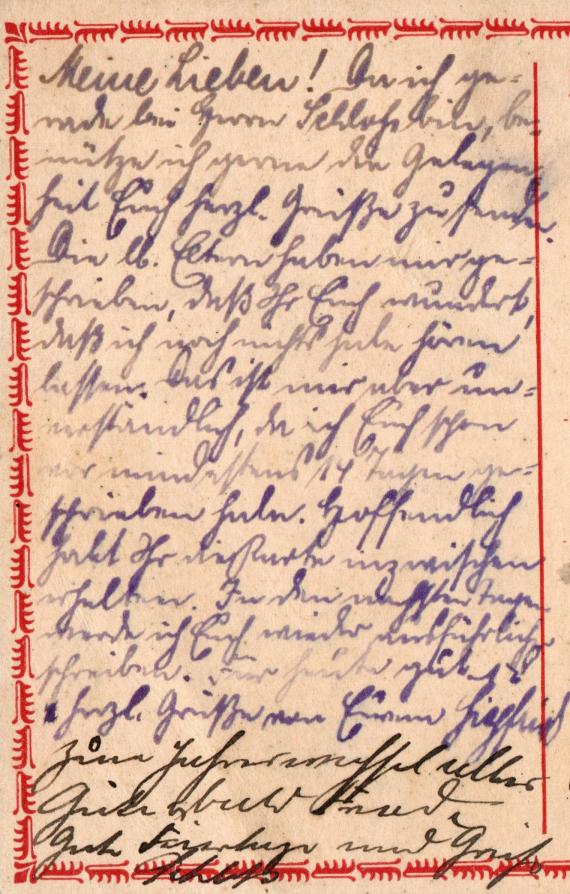 Meine Lieben! Da ich ge-
rade bei Herrn Schloß bin, be-
nütze ich gerne die Gelegen-
heit Euch herzl. Grüße zu senden.
Die lb. Eltern haben mir ge-
schrieben, daß Ihr Euch wundert,
daß ich noch nichts habe hören
lassen. Das ist mir aber un-
verständlich, da ich Euch schon
vor mindestens 14 Tagen ge-
schrieben habe. Hoffendlich
habt Ihr die Karte inzwischen
erhalten. In den nächsten Tagen
werde ich Euch wieder ausführlicher
schreiben. Für heute
herzl. Grüße von Eurem Siegfried
Zum Jahreswechsel alles
Gute
Gute Feiertage und Grüße
Schloß